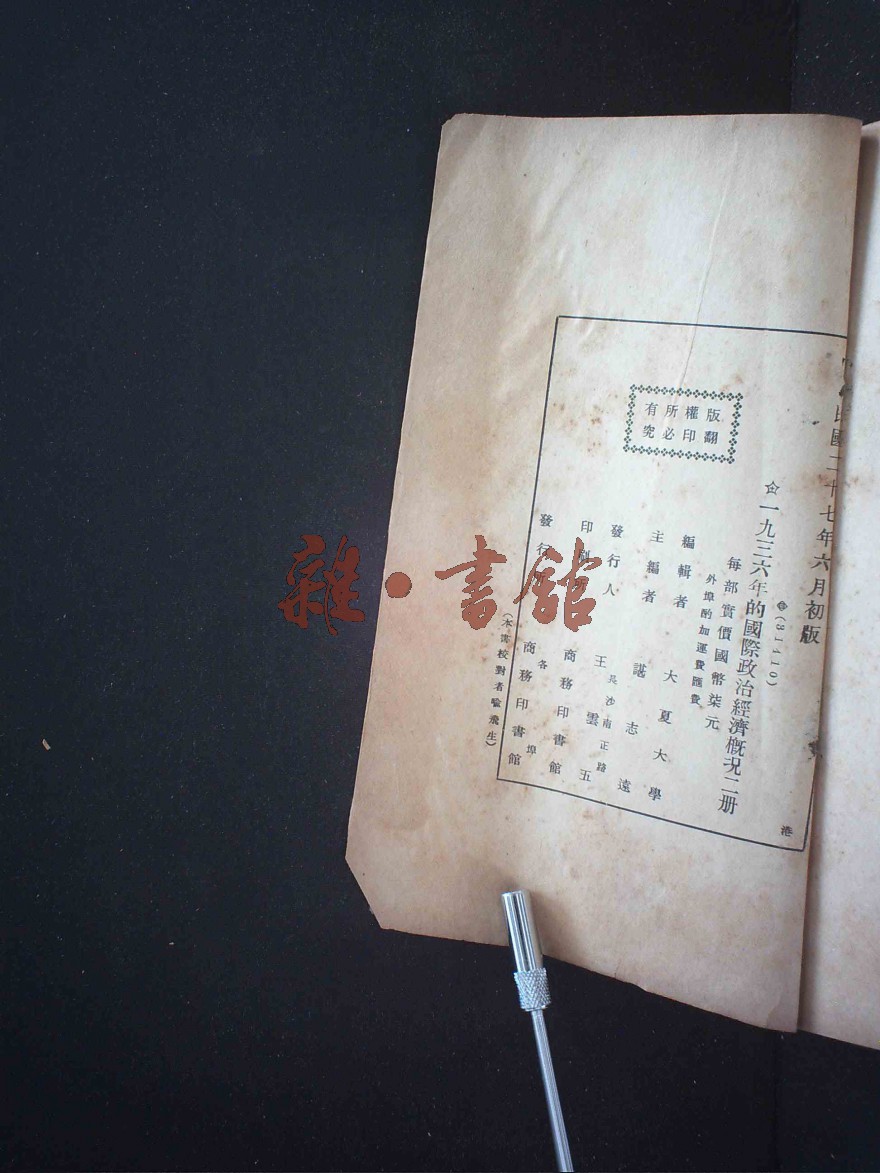 民國二十七年六月初版
(81410)
一九三六年的國際政治經濟概況二册
每部實價國幣柒元
外埠酌加運費匯費
版權所有
翻印必究
編輯者 大夏大學
主編者 諶志遠
發行人 王雲五
長沙南正路
印刷所 商務印書館
發行所 商務印書館
各埠
(本書校對者喩飛生)
港
雜·書館